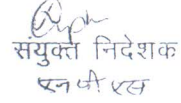 संयुक्त निदेशक
एन पी एस